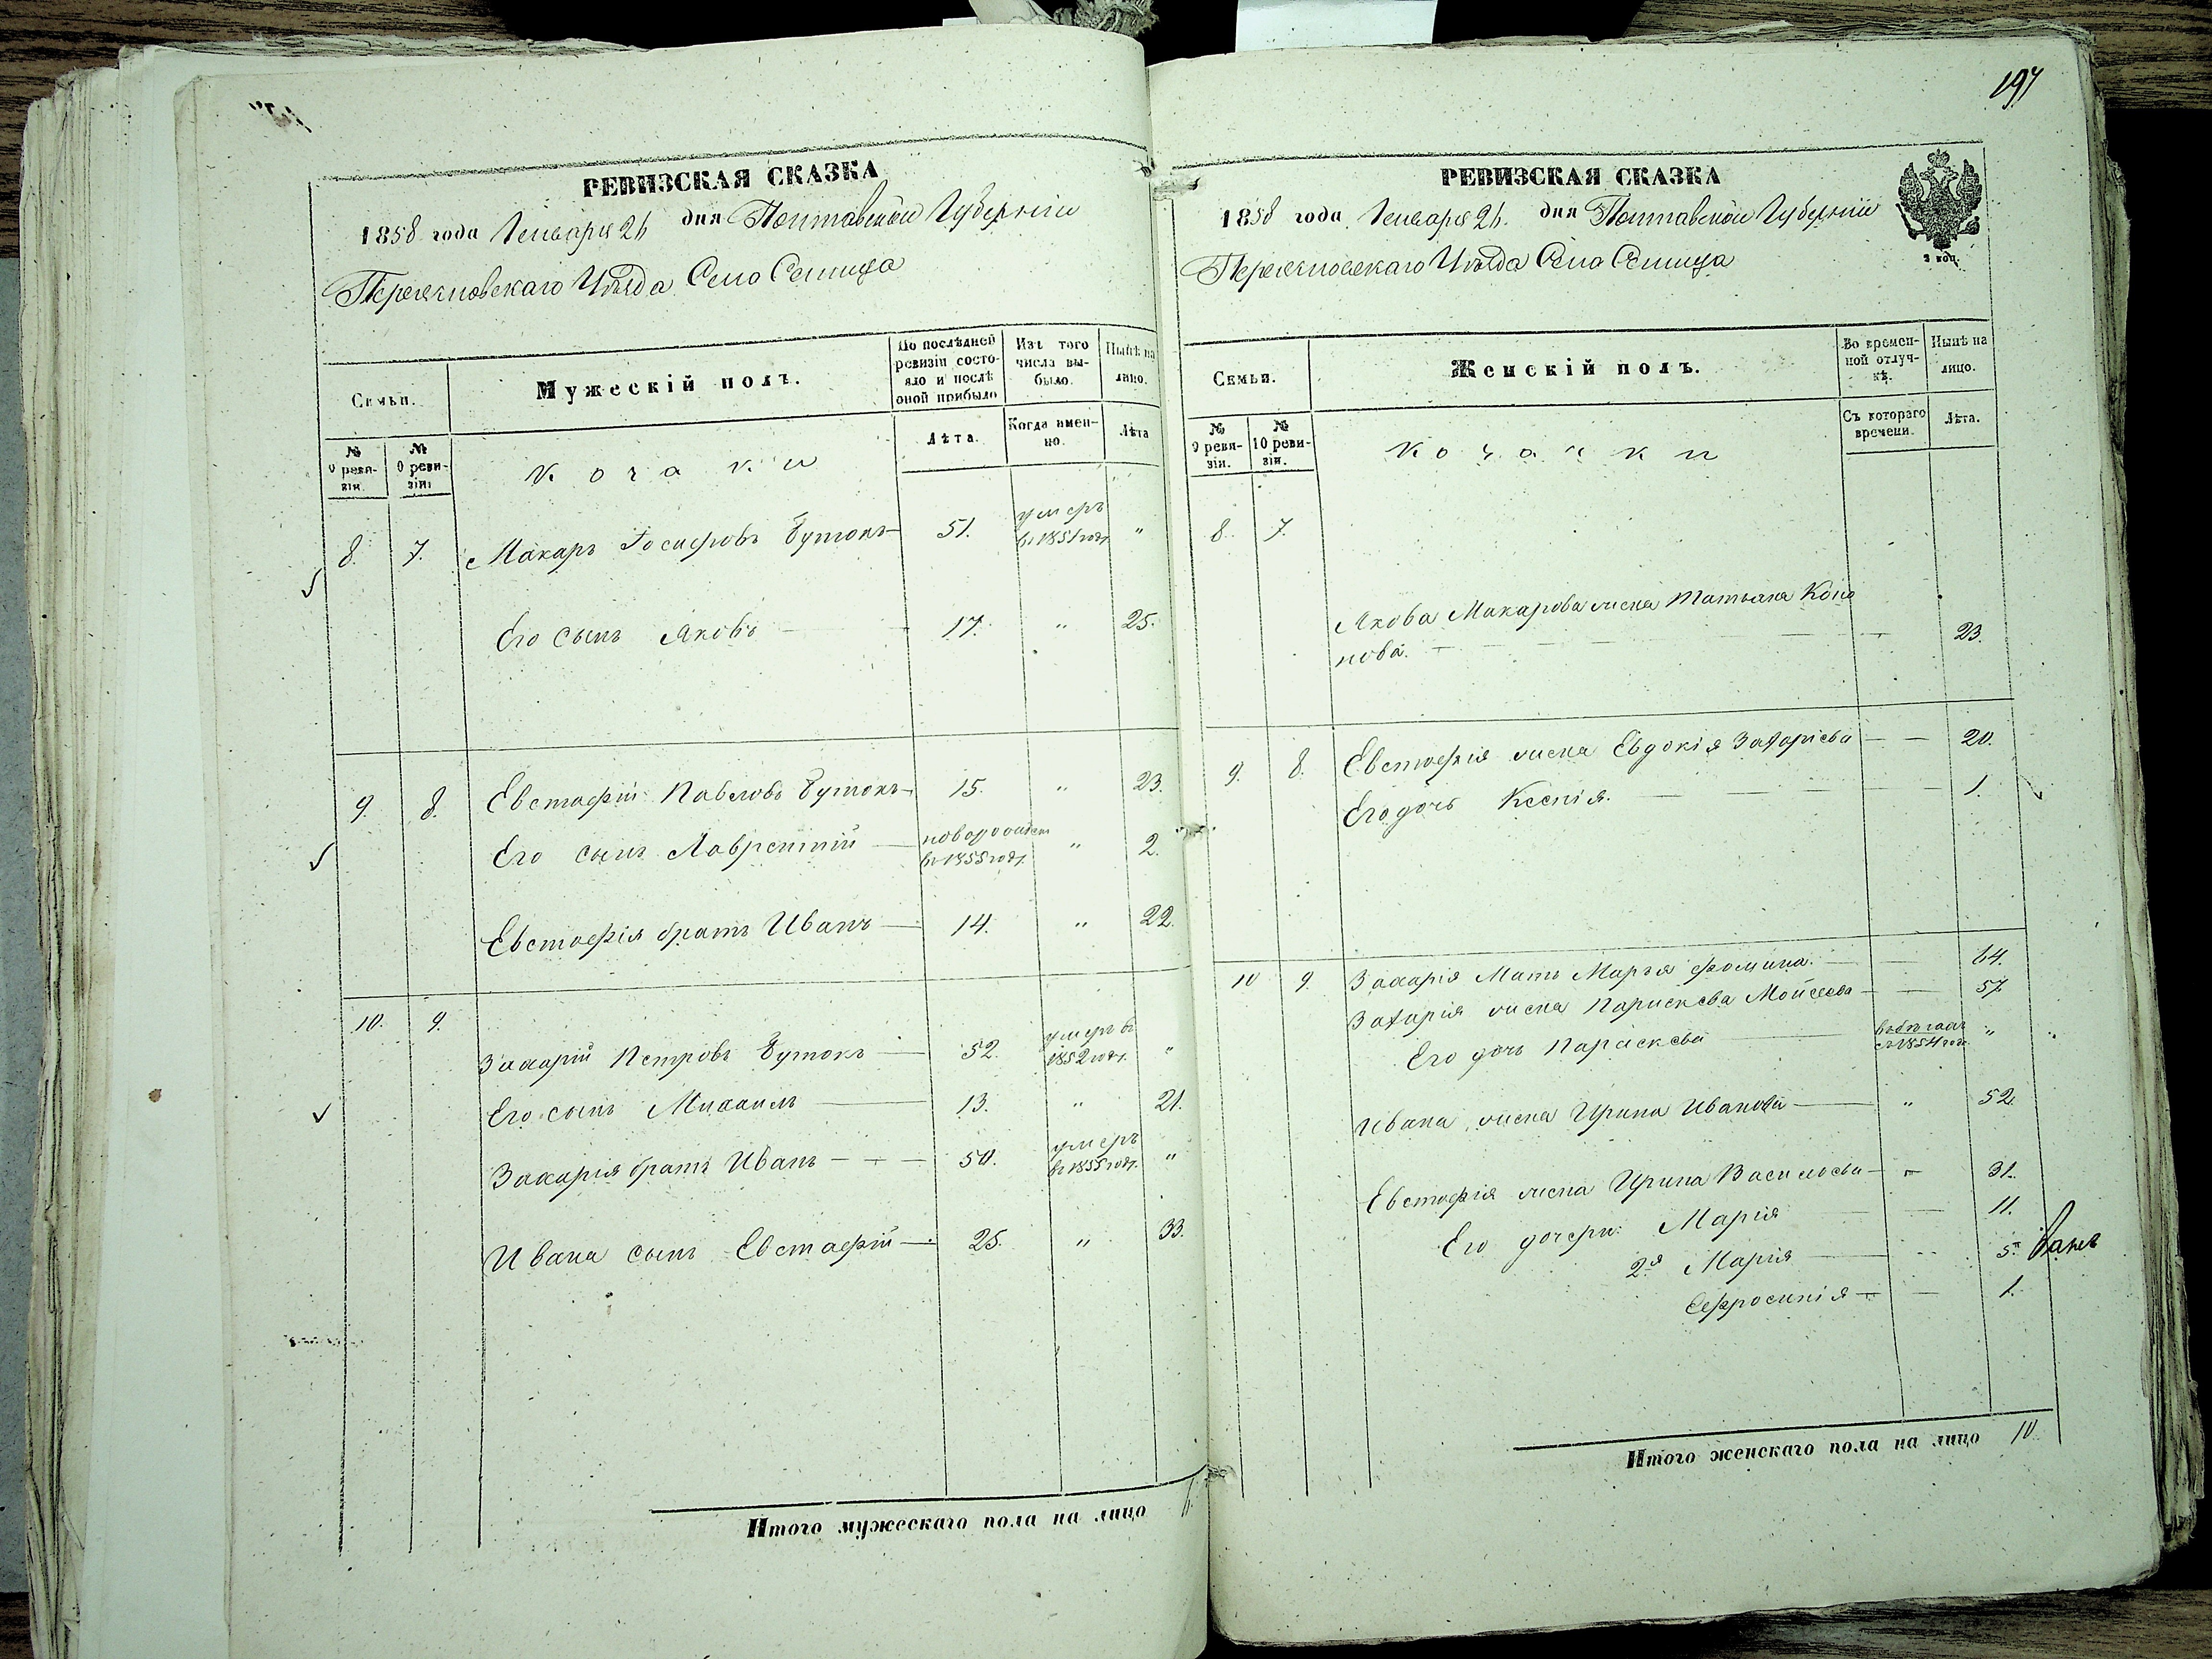 РЕВИЗСКАЯ СКАЗКА
1858 года Января 26 дня Полтавской Губерніи
Переяславскаго Уѣзда Село Семица
Семьи.
Мужескій полъ.
По послѣдней ревизіи состояло и послѣ оной прибыло
Изъ того числа выбыло.
Нынѣ на лицо.
№ 9 ревизіи.
№ 10 ревизіи.
Козаки
Лѣта.
Когда именно.
Лѣта
8. 7. Макаръ Іосифовъ Бутокъ 51. умеръ въ 1851 году "
Его сынъ Яковъ 17. " 25.
9. 8. Евстафій Павловъ Бутокъ 15. " 23.
Его сынъ Лаврентій новорожден въ 1855 году. " 2.
Евстафія братъ Иванъ 14. " 22.
10. 9.
Захарій Петровъ Бутокъ 52. умеръ въ 1852 году. "
Его сынъ Михаилъ 13. " 21.
Захарія братъ Иванъ 50. умеръ въ 1855 году. "
Ивана сынъ Евстафій 25. " 33.
Итого мужескаго пола на лицо 6.
197
РЕВИЗСКАЯ СКАЗКА
1858 года Января 26. дня Полтавской Губерніи
2 коп.
Переяславскаго Уѣзда Село Семица
Семьи.
Женскій полъ.
Во временной отлучкѣ.
Нынѣ на лицо.
№ 9 ревизіи.
№ 10 ревизіи.
Козачки
Съ котораго времени.
Лѣта.
8. 7.
Якова Макарова жена Татьяна Коно
нова. 23.
9. 8. Евстафія жена Евдокія Захаріева 20.
Его дочь Ксенія. 1.
10 9. Захарія Мать Марья Фомина. 64.
Захарія жена Параскева Мойсеева 57.
Его дочь Параскева въ бѣгахъ съ 1854 года "
Ивана жена Ирина Иванова " 52.
Евстафія жена Ирина Васильева " 31.
Его дочери: Марія 11.
2я Марія 5.
Ефросинія 1.
Итого женскаго пола на лицо 10